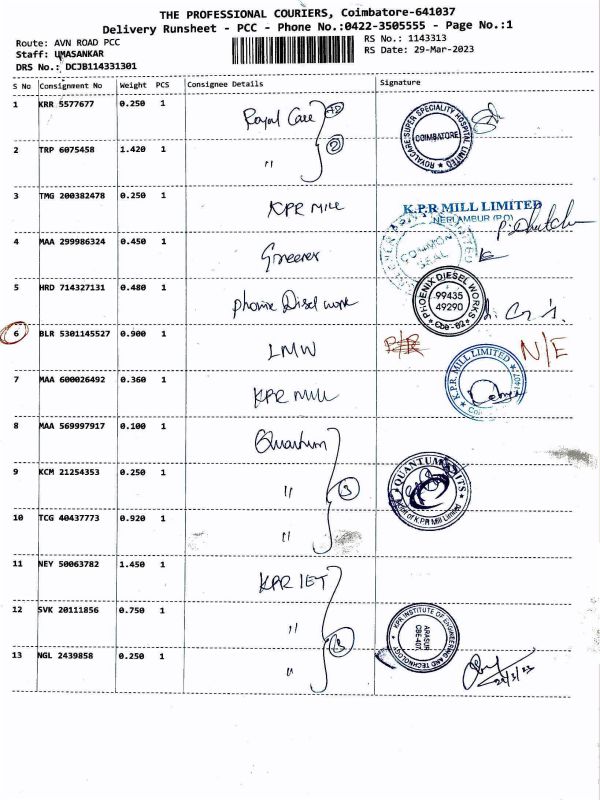 THE PROFESSIONAL COURIERS, Coimbatore-641037
Delivery Runsheet - PCC - Phone No.:0422-3505555 - Page No.:1
Route: AVN ROAD PCC
Staff: UMASANKAR
DRS No.: DCJB114331301
RS No.: 1143313
RS Date: 29-Mar-2023
S No Consignment No Weight PCS Consignee Details Signature
1 KRR 5577677 0.250 1 Royal Care
ROYALCARE SUPER SPECIALITY HOSPITAL LIMITED COIMBATORE
2 TRP 6075458 1.420 1 "
3 TMG 200382478 0.250 1 KPR Mill
K.P.R MILL LIMITED
4 MAA 299986324 0.450 1
COMMON SEAL
5 HRD 714327131 0.480 1 Phonix Disel work
PHOENIX DIESEL WORKS 99435 49290 Cbe - 62
6 BLR 5301145527 0.900 1 LMW N/E
7 MAA 600026492 0.360 1 KPR Mill
K.P.R. MILL LIMITED
8 MAA 569997917 0.100 1 Quantum
9 KCM 21254353 0.250 1 " 3
QUANTUM KNITS
Unit of K.P.R Mill Limited
10 TCG 40437773 0.920 1 "
11 NEY 50063782 1.450 1 KPR IET
12 SVK 20111856 0.750 1 "
KPR INSTITUTE OF ENGINEERING AND TECHNOLOGY ARASUR CBE-407
13 NGL 2439858 0.250 1 "
29/3/23